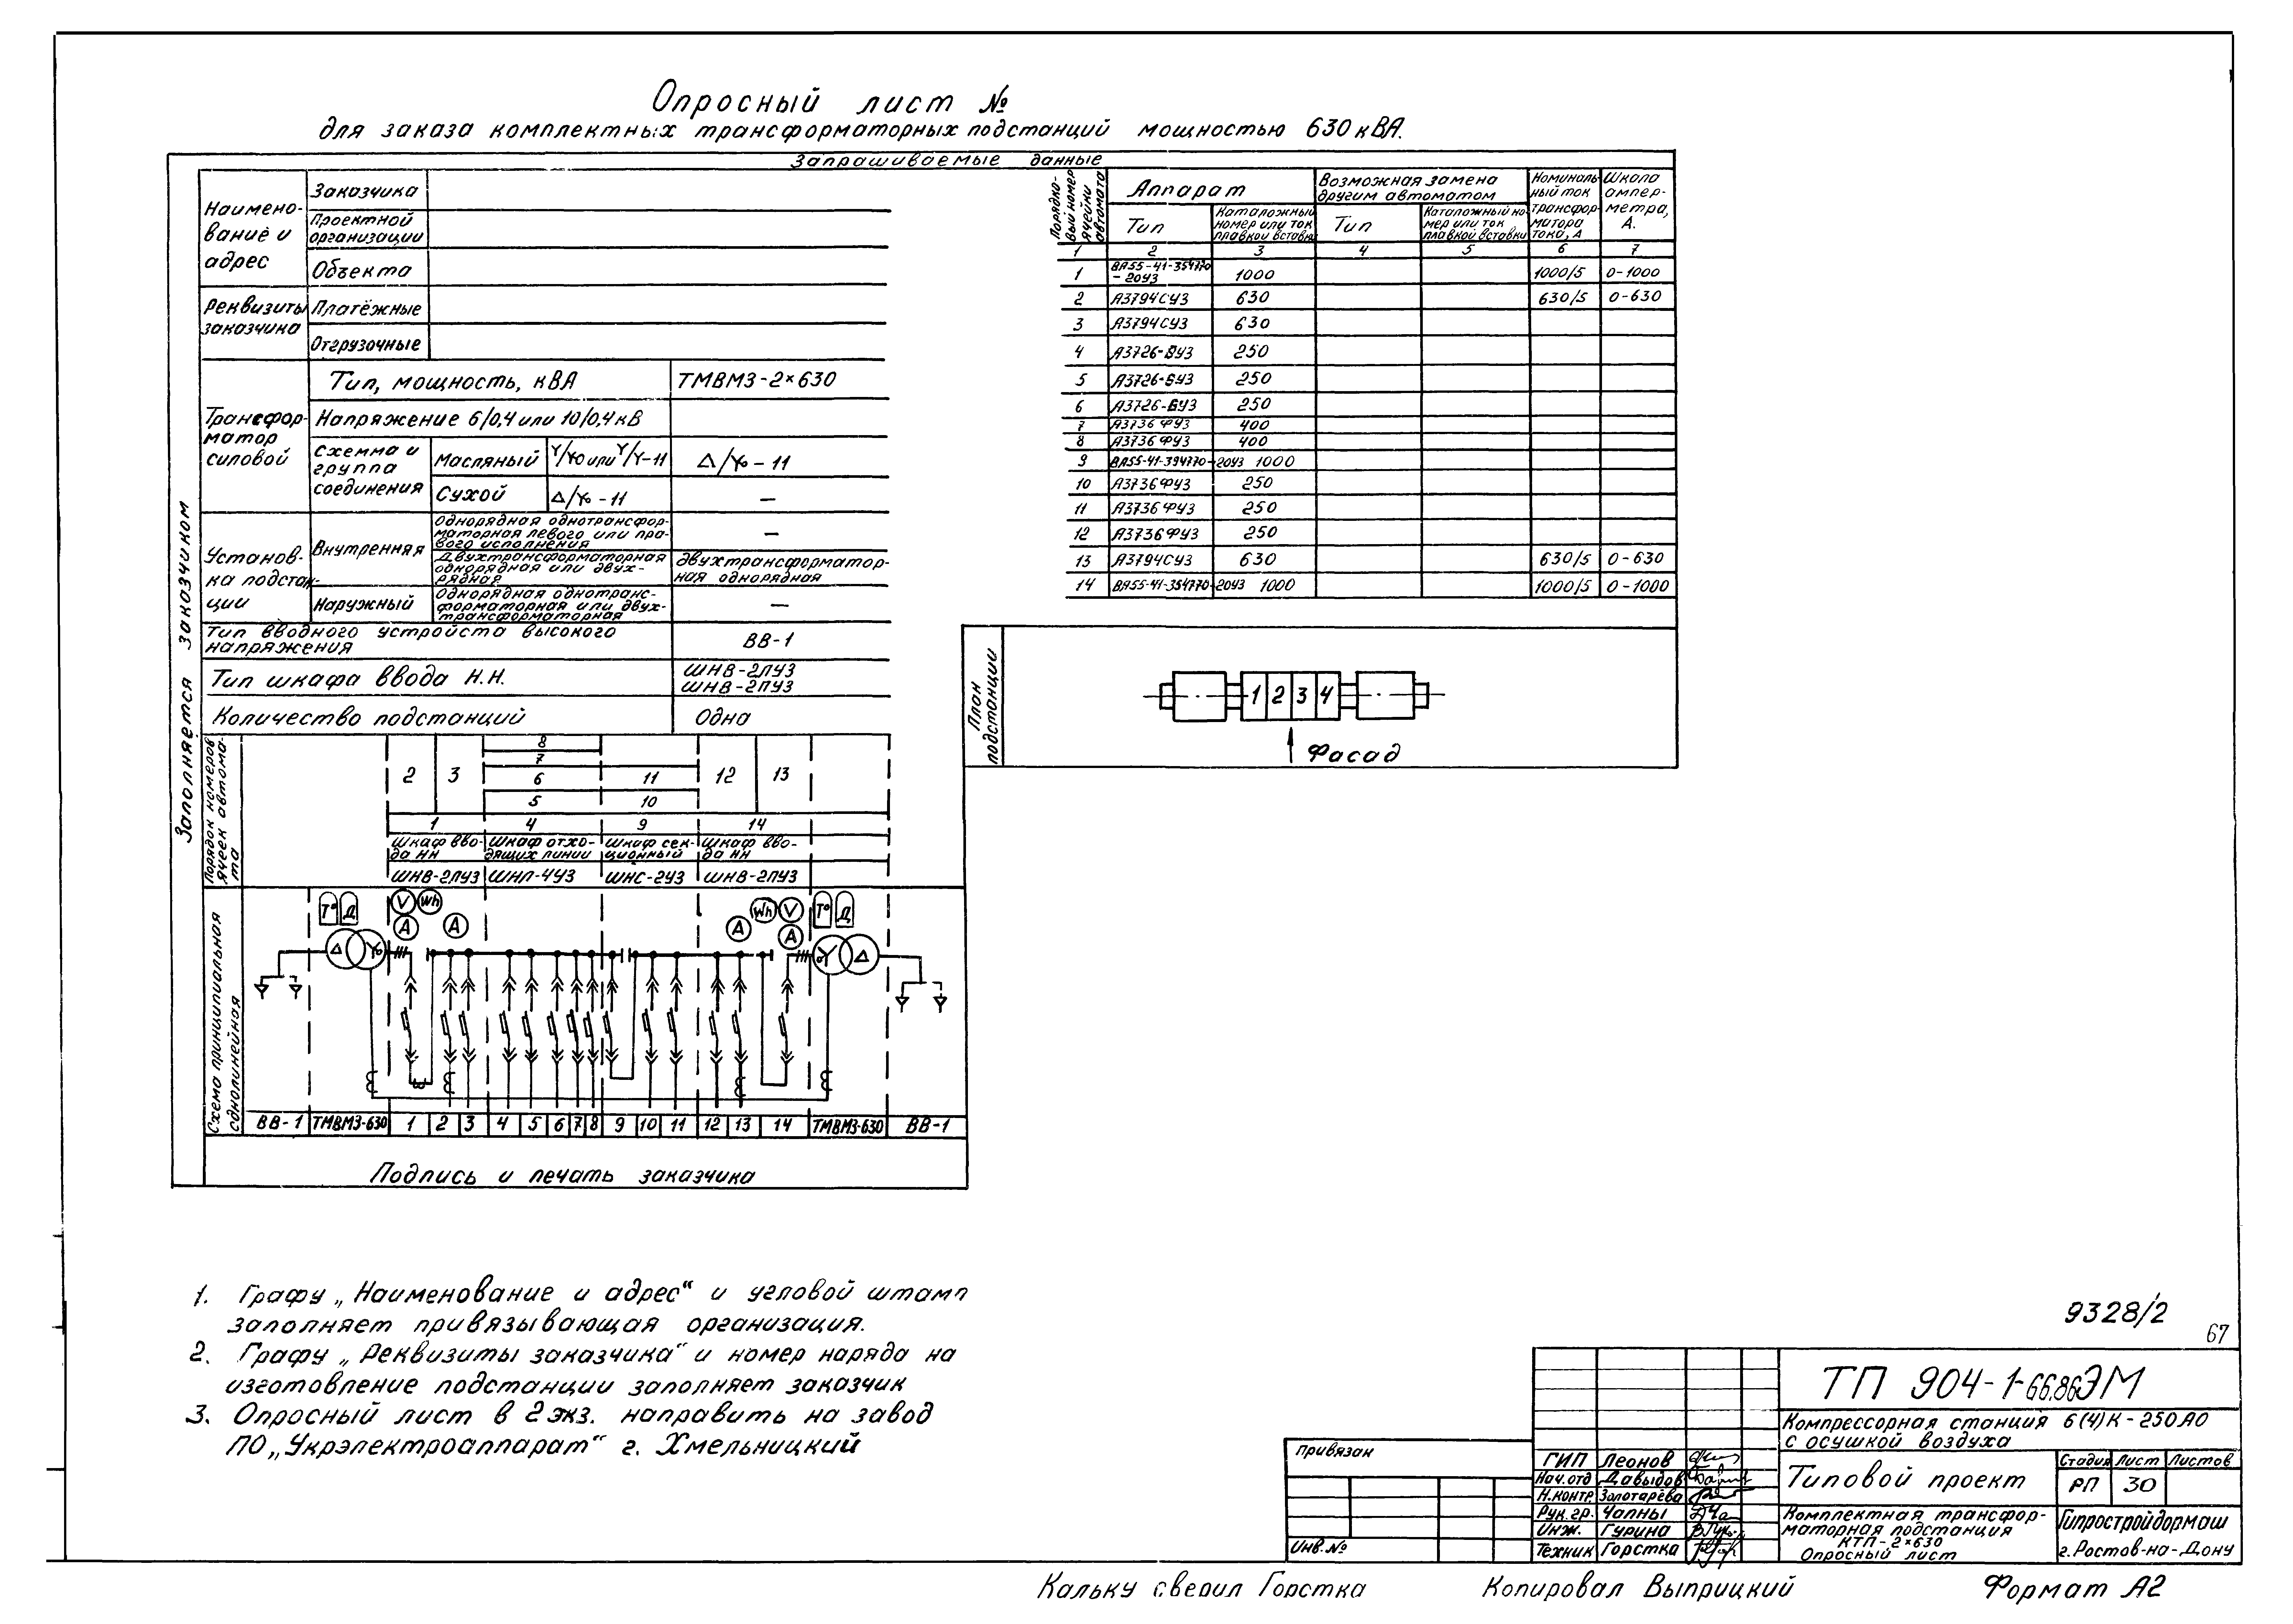 Опросный лист №
для заказа комплектных трансформаторных подстанций мощностью 630 кВА.
Запрашиваемые данные
Заполняется заказчиком
Наимено-
вание и
адрес
Заказчика
Проектной
организации
Объекта
Реквизиты
заказчика
Платёжные
Отгрузочные
Трансфор-
матор
силовой
Тип, мощность, кВА
ТМВМЗ-2×630
Напряжение 6/0,4 или 10/0,4 кВ
Схемма и
группа
соединения
Масляный
Y/Yо или Y/Y-11
Δ/Yо - 11
Сухой
Δ/Yо - 11
—
Установ-
ка подстан-
ции
Внутренняя
Однорядная однотрансфор-
маторная левого или пра-
вого исполнения
—
Двухтрансформаторная
однорядная или двух-
рядная
двухтрансформатор-
ная однорядная
Наружный
Однорядная однотранс-
форматорная или двух-
трансформаторная
—
Тип вводного устройста высокого
напряжения
ВВ-1
Тип шкафа ввода Н.Н.
ШНВ-2ЛУЗ
ШНВ-2ПУЗ
Количество подстанций
Одна
Порядок номеров
ячеек автома-
та
2 3
8
7
6
5
11
10
12 13
1 4 9 14
Шкаф вво-
да НН
Шкаф отхо-
дящих линии
Шкаф сек-
ционный
Шкаф вво-
да НН
ШНВ-2ЛУЗ ШНЛ-4УЗ ШНС-2УЗ ШНВ-2ПУЗ
Схема принципиальная
однолинейная
T° Д V Wh A A
Wh V A A T° Д
Δ Yо
Yо Δ
ВВ-1 ТМВМЗ-630 1 2 3 4 5 6 7 8 9 10 11 12 13 14 ТМВМЗ-630 ВВ-1
Подпись и печать заказчика
Порядко-
вый номер
ячейки
автомата
Аппарат
Возможная замена
другим автоматом
Номиналь-
ный ток
трансфор-
матора
тока, А
Шкала
ампер-
метра,
А.
Тип
Каталожный
номер или ток
плавкой вставки
Тип
Каталожный но-
мер или ток
плавкой вставки
1 2 3 4 5 6 7
1 ВА55-41-354770
-20УЗ 1000 1000/5 0-1000
2 А3794СУЗ 630 630/5 0-630
3 А3794СУЗ 630
4 А3726-БУЗ 250
5 А3726-БУЗ 250
6 А3726-БУЗ 250
7 А3736ФУЗ 400
8 А3736ФУЗ 400
9 ВА55-41-394770-20УЗ 1000
10 А3736ФУЗ 250
11 А3736ФУЗ 250
12 А3736ФУЗ 250
13 А3794СУЗ 630 630/5 0-630
14 ВА55-41-354770-20УЗ 1000 1000/5 0-1000
План
подстанции
1 2 3 4
Фасад
1. Графу „Наименование и адрес“ и угловой штамп
заполняет привязывающая организация.
2. Графу „Реквизиты заказчика“ и номер наряда на
изготовление подстанции заполняет заказчик
3. Опросный лист в 2 экз. направить на завод
ПО„Укрэлектроаппарат“ г. Хмельницкий
9328/2
67
ТП 904-1-66.86 ЭМ
Компрессорная станция 6(4)К-250АО
с осушкой воздуха
Типовой проект
Стадия Лист Листов
РП 30
Комплектная трансфор-
маторная подстанция
КТП-2×630
Опросный лист
Гипростройдормаш
г.Ростов-на-Дону
Привязан
Инв.№
ГИП Леонов
Нач.отд Давыдов
Н.контр Золотарёва
Рук.гр. Чапны
Инж. Гурина
Техник Горстка
Кальку сверил Горстка
Копировал Выприцкий
Формат А2